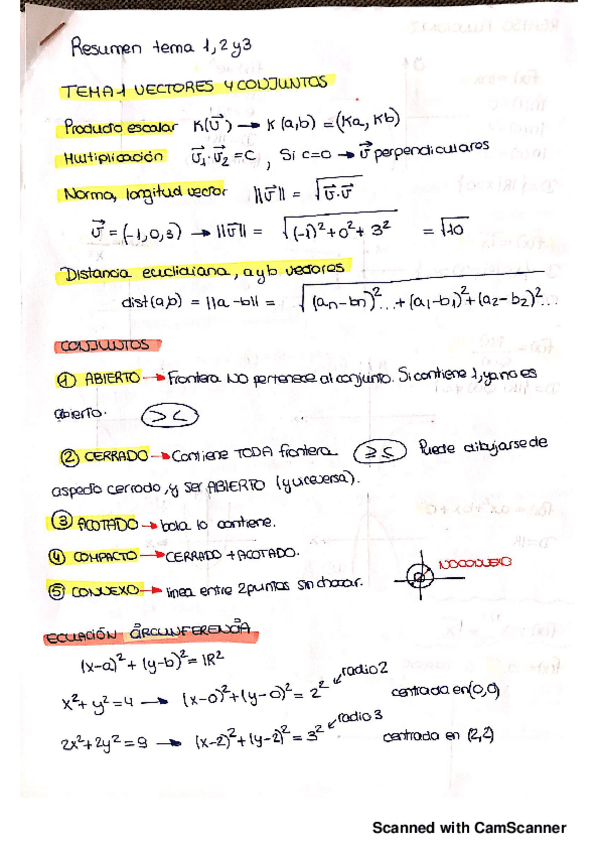 Resumen tema 1, 2 y 3
TEMA 1 VECTORES Y CONJUNTOS
Producto escalar K(v⃗) → K(a,b) = (Ka, Kb)
Multiplicación v⃗₁·v⃗₂ = C, Si c=0 → v⃗ perpendiculares
Norma, longitud vector ||v⃗|| = √(v⃗·v⃗)
v⃗ = (-1,0,3) → ||v⃗|| = √((-1)²+0²+3²) = √10
Distancia euclidiana, a y b vectores
dist(a,b) = ||a-b|| = √((an-bn)²...+(a₁-b₁)²+(a₂-b₂)²...
CONJUNTOS
① ABIERTO → Frontera NO pertenece al conjunto. Si contiene 1, ya no es
abierto. > <
② CERRADO → Contiene TODA frontera. ≥ ≤ Puede dibujarse de
aspecto cerrado, y ser ABIERTO (y viceversa).
③ ACOTADO → bola lo contiene.
④ COMPACTO → CERRADO + ACOTADO.
⑤ CONVEXO → linea entre 2 puntos sin chocar. NO CONVEXO
ECUACIÓN CIRCUNFERENCIA
(x-a)² + (y-b)² = R²
x²+y²=4 → (x-0)²+(y-0)² = 2² radio 2 centrada en (0,0)
2x²+2y²=9 → (x-2)²+(y-2)² = 3² radio 3 centrada en (2,2)
Scanned with CamScanner